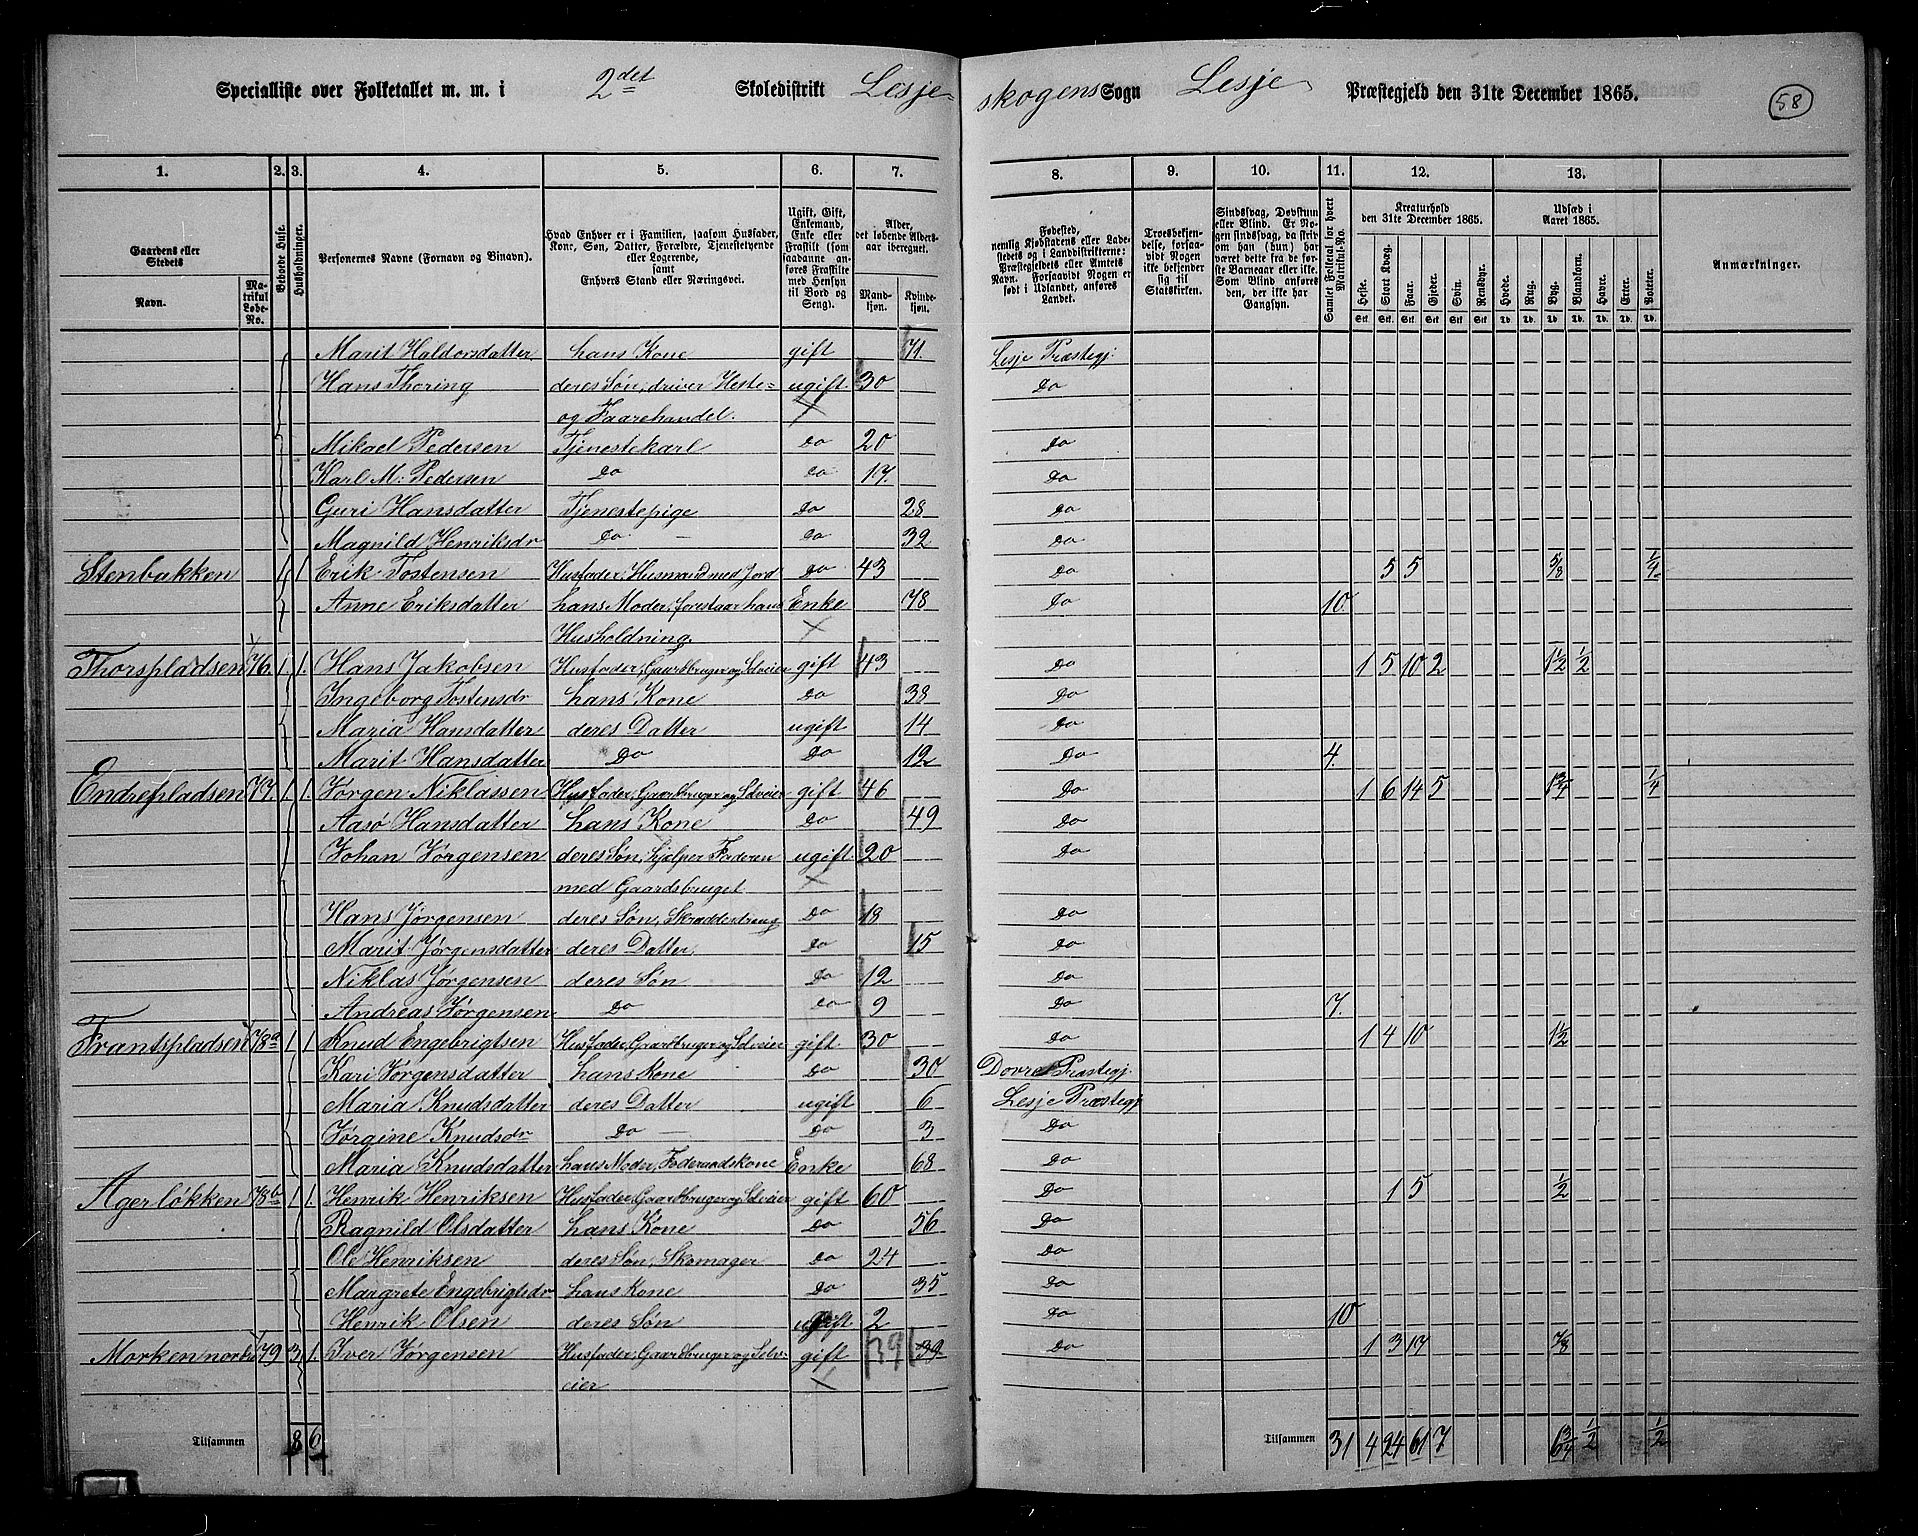 Specialliste over Folketallet m. m. i 2det Skoledistrikt Lesje- skogens Sogn Lesje Præstegjeld den 31te December 1865. 58
1. 2. 3. 4. 5. 6. 7. 8. 9. 10. 11. 12. 13.
Gaardens eller Stedets
Navn.
Matrikul Løbe-No.
Beboede Huse.
Husholdninger.
Personernes Navne (Fornavn og Binavn).
Hvad Enhver er i Familien, saasom Husfader, Kone, Søn, Datter, Forældre, Tjenestetyende eller Logerende, samt Enhvers Stand eller Næringsvei.
Ugift, Gift, Enkemand, Enke eller Fraskilt (som saadanne anføres Fraskilte med Hensyn til Bord og Seng).
Alder, det løbende Aldersaar iberegnet.
Mandkjøn. Kvindekjøn.
Fødested, nemlig Kjøbstadens eller Ladestedets og i Landdistrikterne: Præstegjeldets eller Amtets Navn. Forsaavidt Nogen er født i Udlandet, anføres Landet.
Troesbekjendelse, forsaavidt Nogen ikke bekjender sig til Statskirken.
Sindssvag, Døvstum eller Blind. Er Nogen sindssvag, da skrives han (hun) har været dette fra de første Barneaar eller ikke. Som Blind anføres den, der ikke har Gangsyn.
Samlet Folketal for hvert Matrikul-No.
Kreaturhold den 31te December 1865.
Heste. Stort Kvæg. Faar. Gjeder. Svin. Rensdyr.
Udsæd i Aaret 1865.
Hvede. Rug. Byg. Blandkorn. Havre. Erter. Poteter.
Stk. Stk. Stk. Stk. Stk. Stk. Td. Td. Td. Td. Td. Td. Td.
Anmærkninger.
Marit Haldorsdatter hans Kone gift 71. Lesje Præstegj.
Hans Thoring deres Søn, driver Heste- ugift 30 Do
og Faarehandel.
Mikael Pedersen Tjenestekarl Do 20 Do
Karl M: Pedersen Do Do 17. Do
Guri Hansdatter Tjenestepige Do 28 Do
Magnild Henriksdr Do Do 32 Do
Stenbakken 1 1 Erik Tostensen Husfader, Husmand med Jord Do 43 Do 5 5 5/8 1/4
Anne Eriksdatter hans Moder, forestaar hans Enke 78 Do 10.
Husholdning.
Thorspladsen 76. 1 1. Hans Jakobsen Husfader, Gaardbruger og Selveier gift 43 Do 1 5 10 2 1 1/2 1/2
Ingeborg Tostensdr hans Kone Do 38 Do
Maria Hansdatter deres Datter ugift 14 Do
Marit Hansdatter Do Do 12 Do 4.
Endrepladsen 77. 1 1. Jørgen Niklassen Husfader, Gaardbruger og Selveier gift 46 Do 1 6 14 5 1 3/4 1/4
Aasø Hansdatter hans Kone Do 49 Do
Johan Jørgensen deres Søn, hjelper Faderen ugift 20 Do
med Gaardsbruget
Hans Jørgensen deres Søn, Skrædderdreng Do 18 Do
Marit Jørgensdatter deres Datter Do 15 Do
Niklas Jørgensen deres Søn Do 12 Do
Andreas Jørgensen Do Do 9 Do 7.
Frantspladsen 78a 1 1 Knud Engebrigtsen Husfader, Gaardbruger og Selveier gift 30 Do 1 4 10 1 1/2
Kari Jørgensdatter hans Kone Do 30 Dovre Præstegj.
Maria Knudsdatter deres Datter ugift 6 Lesje Præstegj
Jørgine Knudsdr Do Do 3 Do
Maria Knudsdatter hans Moder, Føderaadskone Enke 68 Do
Agerløkken 78b 1 1. Henrik Henriksen Husfader, Gaardbruger og Selveier gift 60 Do 1 5 1/2
Ragnild Olsdatter hans Kone Do 56 Do
Ole Henriksen deres Søn, Skomager Do 24 Do
Margrete Engebrigtsdr hans Kone Do 35 Do
Henrik Olsen deres Søn ugift 2 Do 10
Morken nordre 79 3 1. Iver Jørgensen Husfader, Gaardbruger og Selv- gift 39 39 Do 1 3 17 7/8
eier
Tilsammen 8 6 Tilsammen 31 4 24 61 7 6 3/4 1/2 1/2